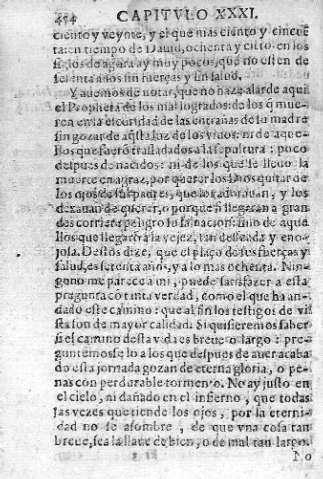 454 CAPITVLO XXXI.
ciento y veynte, y el que mas ciento y cincuẽ
ta: en tiempo de Dauid, ochenta y esto en los
de agora ay muy pocos, que no esten de
setenta años sin fuerças y sin salud.
Y auemos de notar, que no haze alarde aqui
el Propheta de los mal logrados: de los q̃ mue-
ren en la eternidad de las entrañas de su madre
sin gozar de aq̃sta luz de los viuos: ni de aque-
llos que fuerõ trasladados a la sepultura: poco
despues de nacidos: ni de los que se lleuo la
muerte en agraz, por querer los Dios quitar de
los ojos de sus padres, que los adorauan, y los
dexauan de querer, o porque si llegaran a gran
des corriera peligro su saluacion: sino de aque-
llos que llegarõ a la vejez, tan desseada y eno-
josa. Destos dize, que el plaço de sus fuerças y
salud, es setenta años, y a lo mas ochenta. Nin-
guno me parece a mi, puede satisfazer a esta
pregunta cõ tanta verdad, como el que ha an-
dado este camino: que al fin los testigos de vi-
sta son de mayor calidad. Si quisieremos saber
si el camino desta vida es breue o largo: pre-
guntemos se lo a los que despues de auer acaba
do esta jornada gozan de eterna gloria, o pe-
nas con perdurable tormento. No ay justo en
el cielo, ni dañado en el infierno, que todas
las vezes que tiende los ojos, por la eterni-
dad no se asombre, de que vna cosa tan
breue, sea la llaue de bien, o de mal tan largo.
No